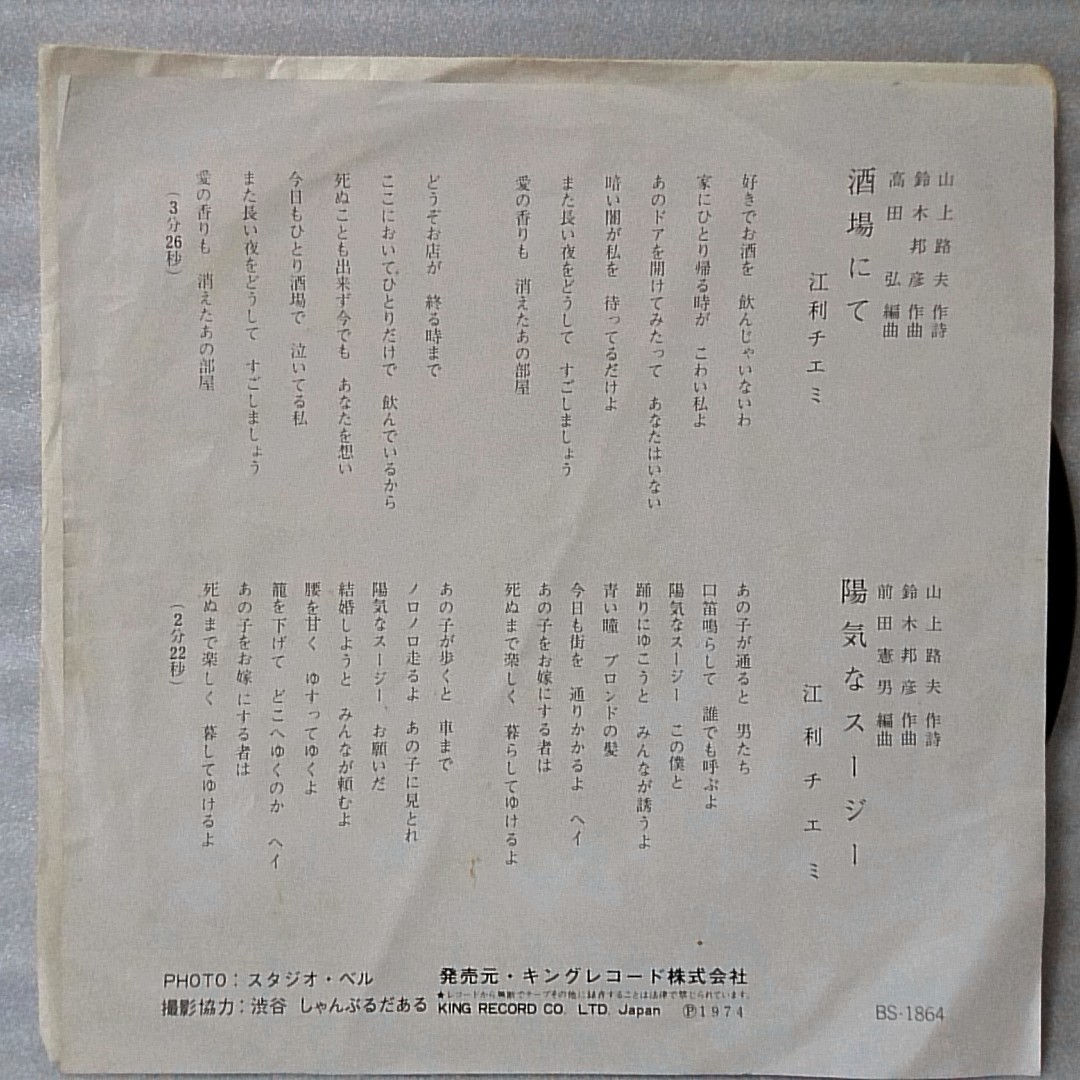 山上路夫 作詩
鈴木邦彦 作曲
高田弘 編曲
酒場にて
江利チエミ
好きでお酒を 飲んじゃいないわ
家にひとり帰る時が こわい私よ
あのドアを開けてみたって あなたはいない
暗い闇が私を 待ってるだけよ
また長い夜をどうして すごしましょう
愛の香りも 消えたあの部屋
どうぞお店が 終る時まで
ここにおいて、ひとりだけで 飲んでいるから
死ぬことも出来ず今でも あなたを想い
今日もひとり酒場で 泣いてる私
また長い夜をどうして すごしましょう
愛の香りも 消えたあの部屋
(3分26秒)
山上路夫 作詩
鈴木邦彦 作曲
前田憲男 編曲
陽気なスージー
江利チエミ
あの子が通ると 男たち
口笛鳴らして 誰でも呼ぶよ
陽気なスージー この僕と
踊りにゆこうと みんなが誘うよ
青い瞳 ブロンドの髪
今日も街を 通りかかるよ ヘイ
あの子をお嫁にする者は
死ぬまで楽しく 暮らしてゆけるよ
あの子が歩くと 車まで
ノロノロ走るよ あの子に見とれ
陽気なスージー、お願いだ
結婚しようと みんなが頼むよ
腰を甘く ゆすってゆくよ
籠を下げて どこへゆくのか ヘイ
あの子をお嫁にする者は
死ぬまで楽しく 暮してゆけるよ
(2分22秒)
PHOTO:スタジオ・ベル
撮影協力:渋谷 しゃんぶるだある
発売元・キングレコード株式会社
★レコードから無断でテープその他に録音することは法律で禁じられています。
KING RECORD CO. LTD. Japan ℗1974
BS-1864